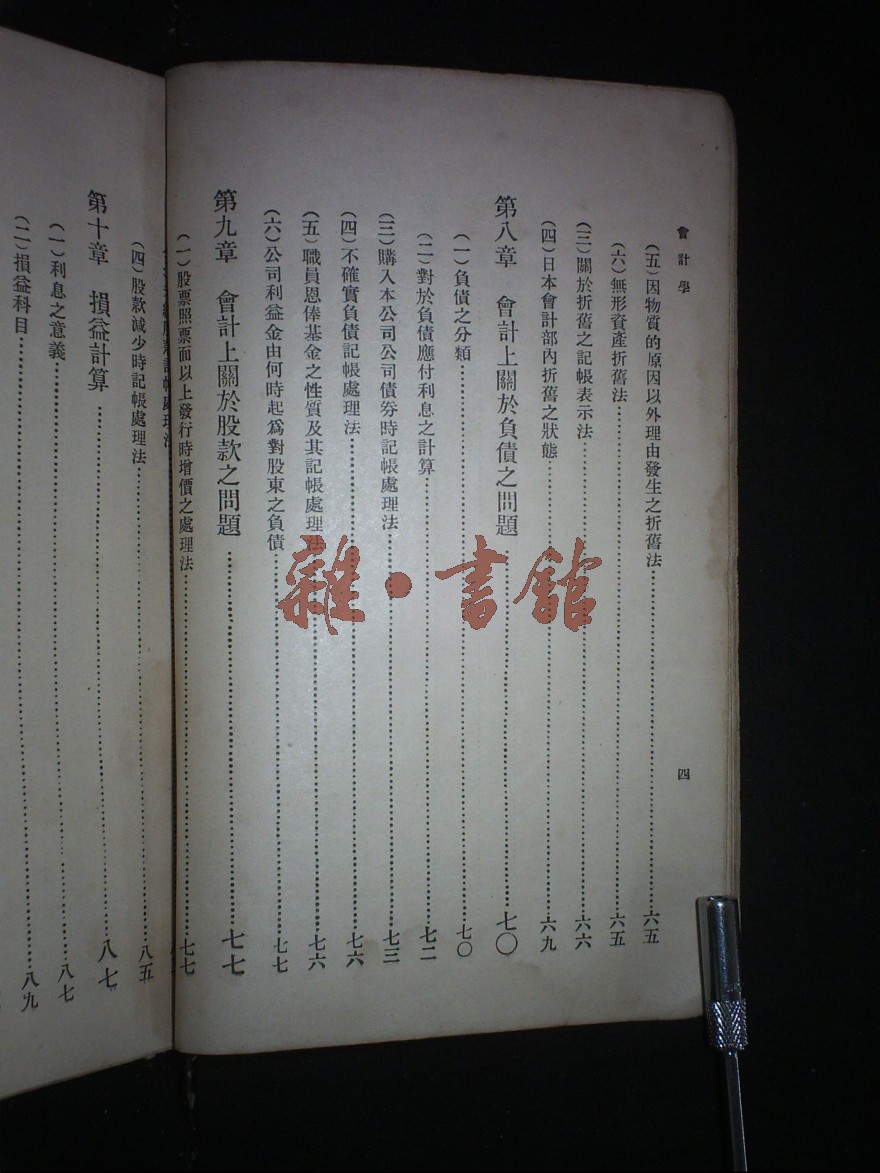 會計學
四
(五)因物質的原因以外理由發生之折舊法……六五
(六)無形資產折舊法……六五
(三)關於折舊之記帳表示法……六六
(四)日本會計部內折舊之狀態……六九
第八章 會計上關於負債之問題……七〇
(一)負債之分類……七〇
(二)對於負債應付利息之計算……七二
(三)購入本公司公司債券時記帳處理法……七三
(四)不確實負債記帳處理法……七六
(五)職員恩俸基金之性質及其記帳處理法……七六
(六)公司利益金由何時起爲對股東之負債……七七
第九章 會計上關於股款之問題……七七
(一)股票照票面以上發行時增價之處理法……七七
記帳處理法
(四)股款減少時記帳處理法……八五
第十章 損益計算……八七
(一)利息之意義……八七
(二)損益科目……八九
雜·書館